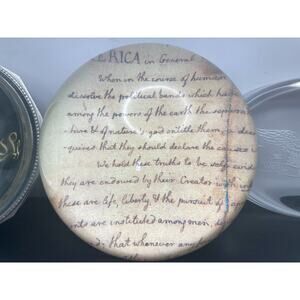 ERICA in General
When in the course of human
dissolve the political bands which ha
among the powers of the earth the separa
ture & of nature's god entitle them, a de
quires that they should declare the causes
We hold these truths to be self evid
they are endowed by their Creator with
these are life, liberty, & the pursuit of
nts are instituted among men,
that whenever any